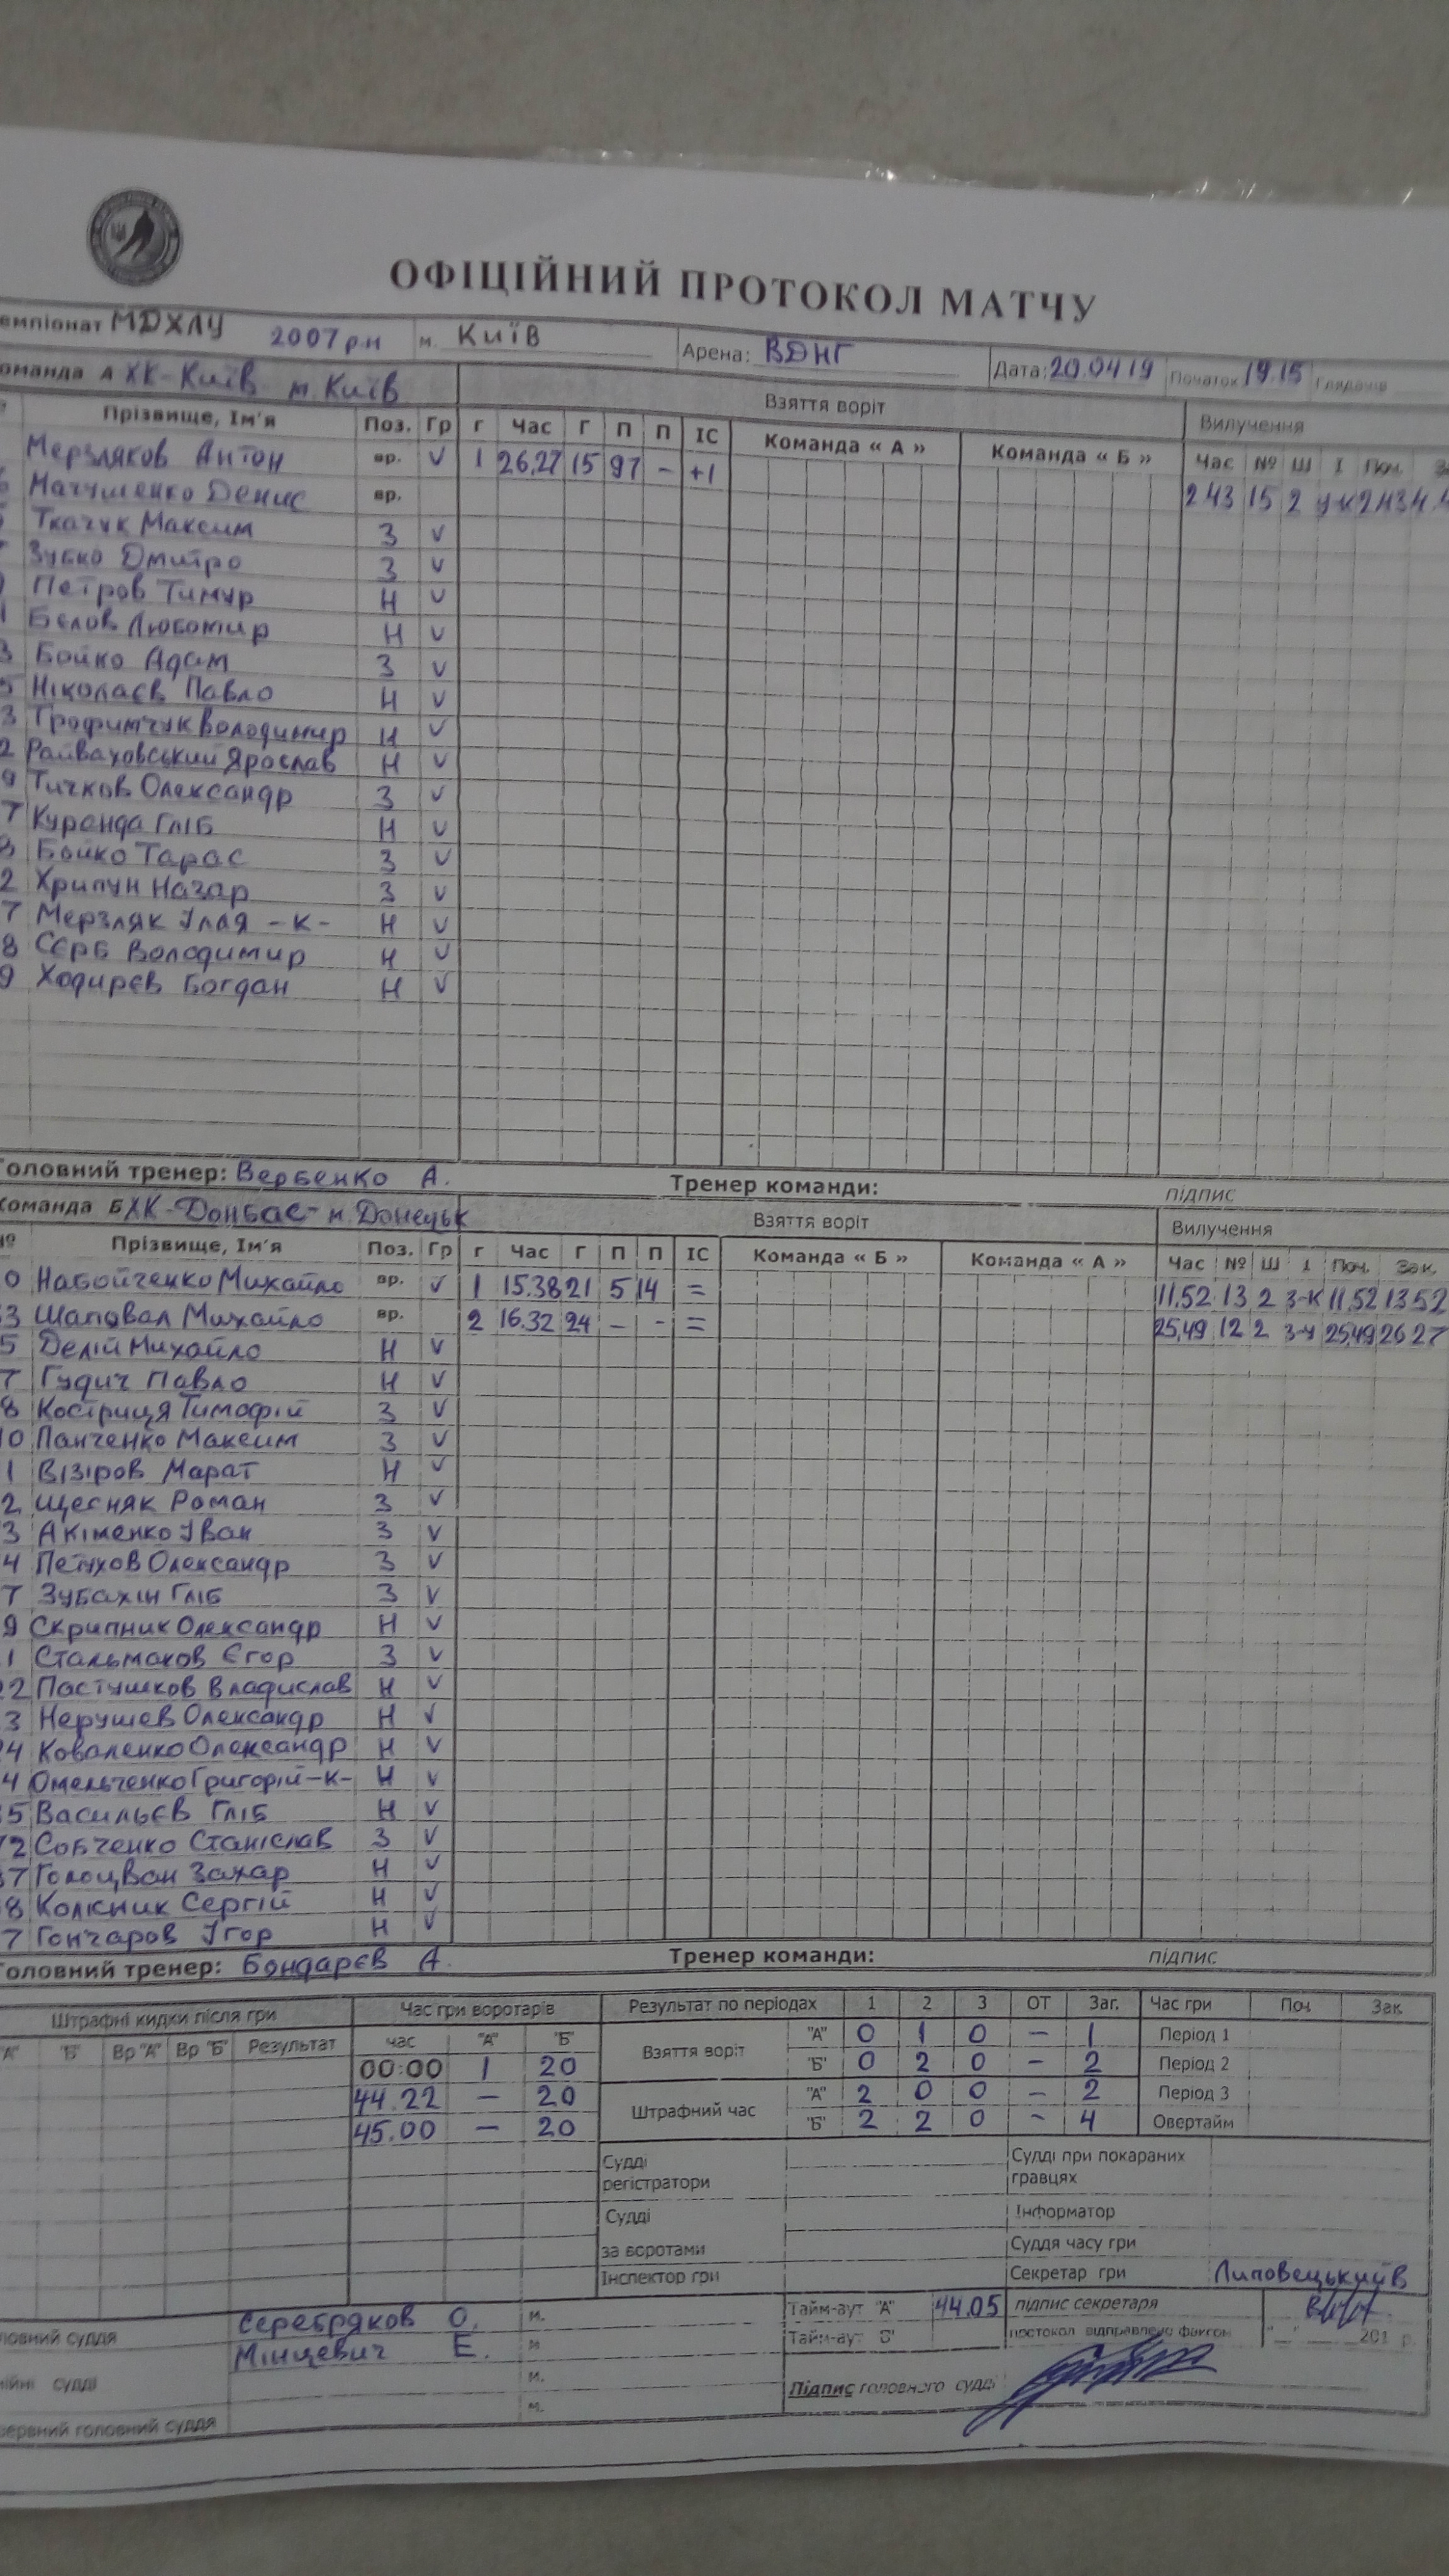 ОФІЦІЙНИЙ ПРОТОКОЛ МАТЧУ
емпіонат МДХЛУ 2007 р.н м. Київ Арена: ВДНГ Дата: 20.04 19 Початок 19.15 Глядачів
оманда А ХК-Київ м. Київ Взяття воріт Вилучення
Прізвище, Ім'я Поз. Гр Г Час Г П П ІС Команда « А » Команда « Б » Час № Ш І Поч.
Мерзляков Антон вр. V 1 26,27 15 97 – +1
Матушенко Денис вр. 2 43 15 2
Ткачук Максим З V
Зубко Дмитро З V
Петров Тимур Н V
Бєлов Любомир Н V
3 Бойко Адам З V
5 Ніколаєв Павло Н V
3 Трофимчук Володимир Н V
2 Райваховський Ярослав Н V
9 Тичков Олександр З V
7 Куранда Гліб Н V
8 Бойко Тарас З V
2 Хрипун Назар З V
7 Мерзляк Ілля -К- Н V
8 Сєрб Володимир Н V
9 Ходирєв Богдан Н V
оловний тренер: Вербенко А. Тренер команди: підпис
Команда Б ХК-Донбас- м. Донецьк Взяття воріт Вилучення
№ Прізвище, Ім'я Поз. Гр Г Час Г П П ІС Команда « Б » Команда « А » Час № Ш І Поч. Зак.
0 Набойченко Михайло вр. V 1 15.38 21 5 14 = 11,52 13 2 З-К 11,52 13 52
3 Шаповал Михайло вр. 2 16.32 24 – - = 25,49 12 2 25,49 26 27
5 Делій Михайло Н V
7 Гудич Павло Н V
8 Костриця Тимофій З V
10 Панченко Максим З V
1 Візіров Марат Н V
2 Щесняк Роман З V
3 Акіменко Іван З V
4 Пєтухов Олександр З V
7 Зубахін Гліб З V
9 Скрипник Олександр Н V
1 Стальмаков Єгор З V
22 Пастушков Владислав Н V
3 Нерушев Олександр Н V
24 Коваленко Олександр Н V
4 Омельченко Григорій -К- Н V
5 Васильєв Гліб Н V
72 Собченко Станіслав З V
7 Голоцван Захар Н V
8 Колісник Сергій Н V
7 Гончаров Ігор Н V
оловний тренер: Бондарєв А. Тренер команди: підпис
Штрафні кидки після гри Час гри воротарів Результат по періодах 1 2 3 ОТ Заг. Час гри Поч Зак.
"А" "Б" Вр "А" Вр "Б" Результат час "А" "Б" Взяття воріт "А" 0 1 0 – 1 Період 1
00:00 1 20 "Б" 0 2 0 – 2 Період 2
44.22 – 20 Штрафний час "А" 2 0 0 – 2 Період 3
45.00 – 20 "Б" 2 2 0 ~ 4 Овертайм
Судді регістратори Судді при покараних гравцях
Судді за воротами Інформатор
Суддя часу гри
Інспектор гри Секретар гри Липовецький В
ловний суддя Серебряков О. м. Тайм-аут "А" 44.05 підпис секретаря
Мінцевич Е. м Тайм-аут "Б" протокол відправлено факсом "__" ____ 201 р.
ійні судді м. Підпис головного судді
зервний головний суддя м.